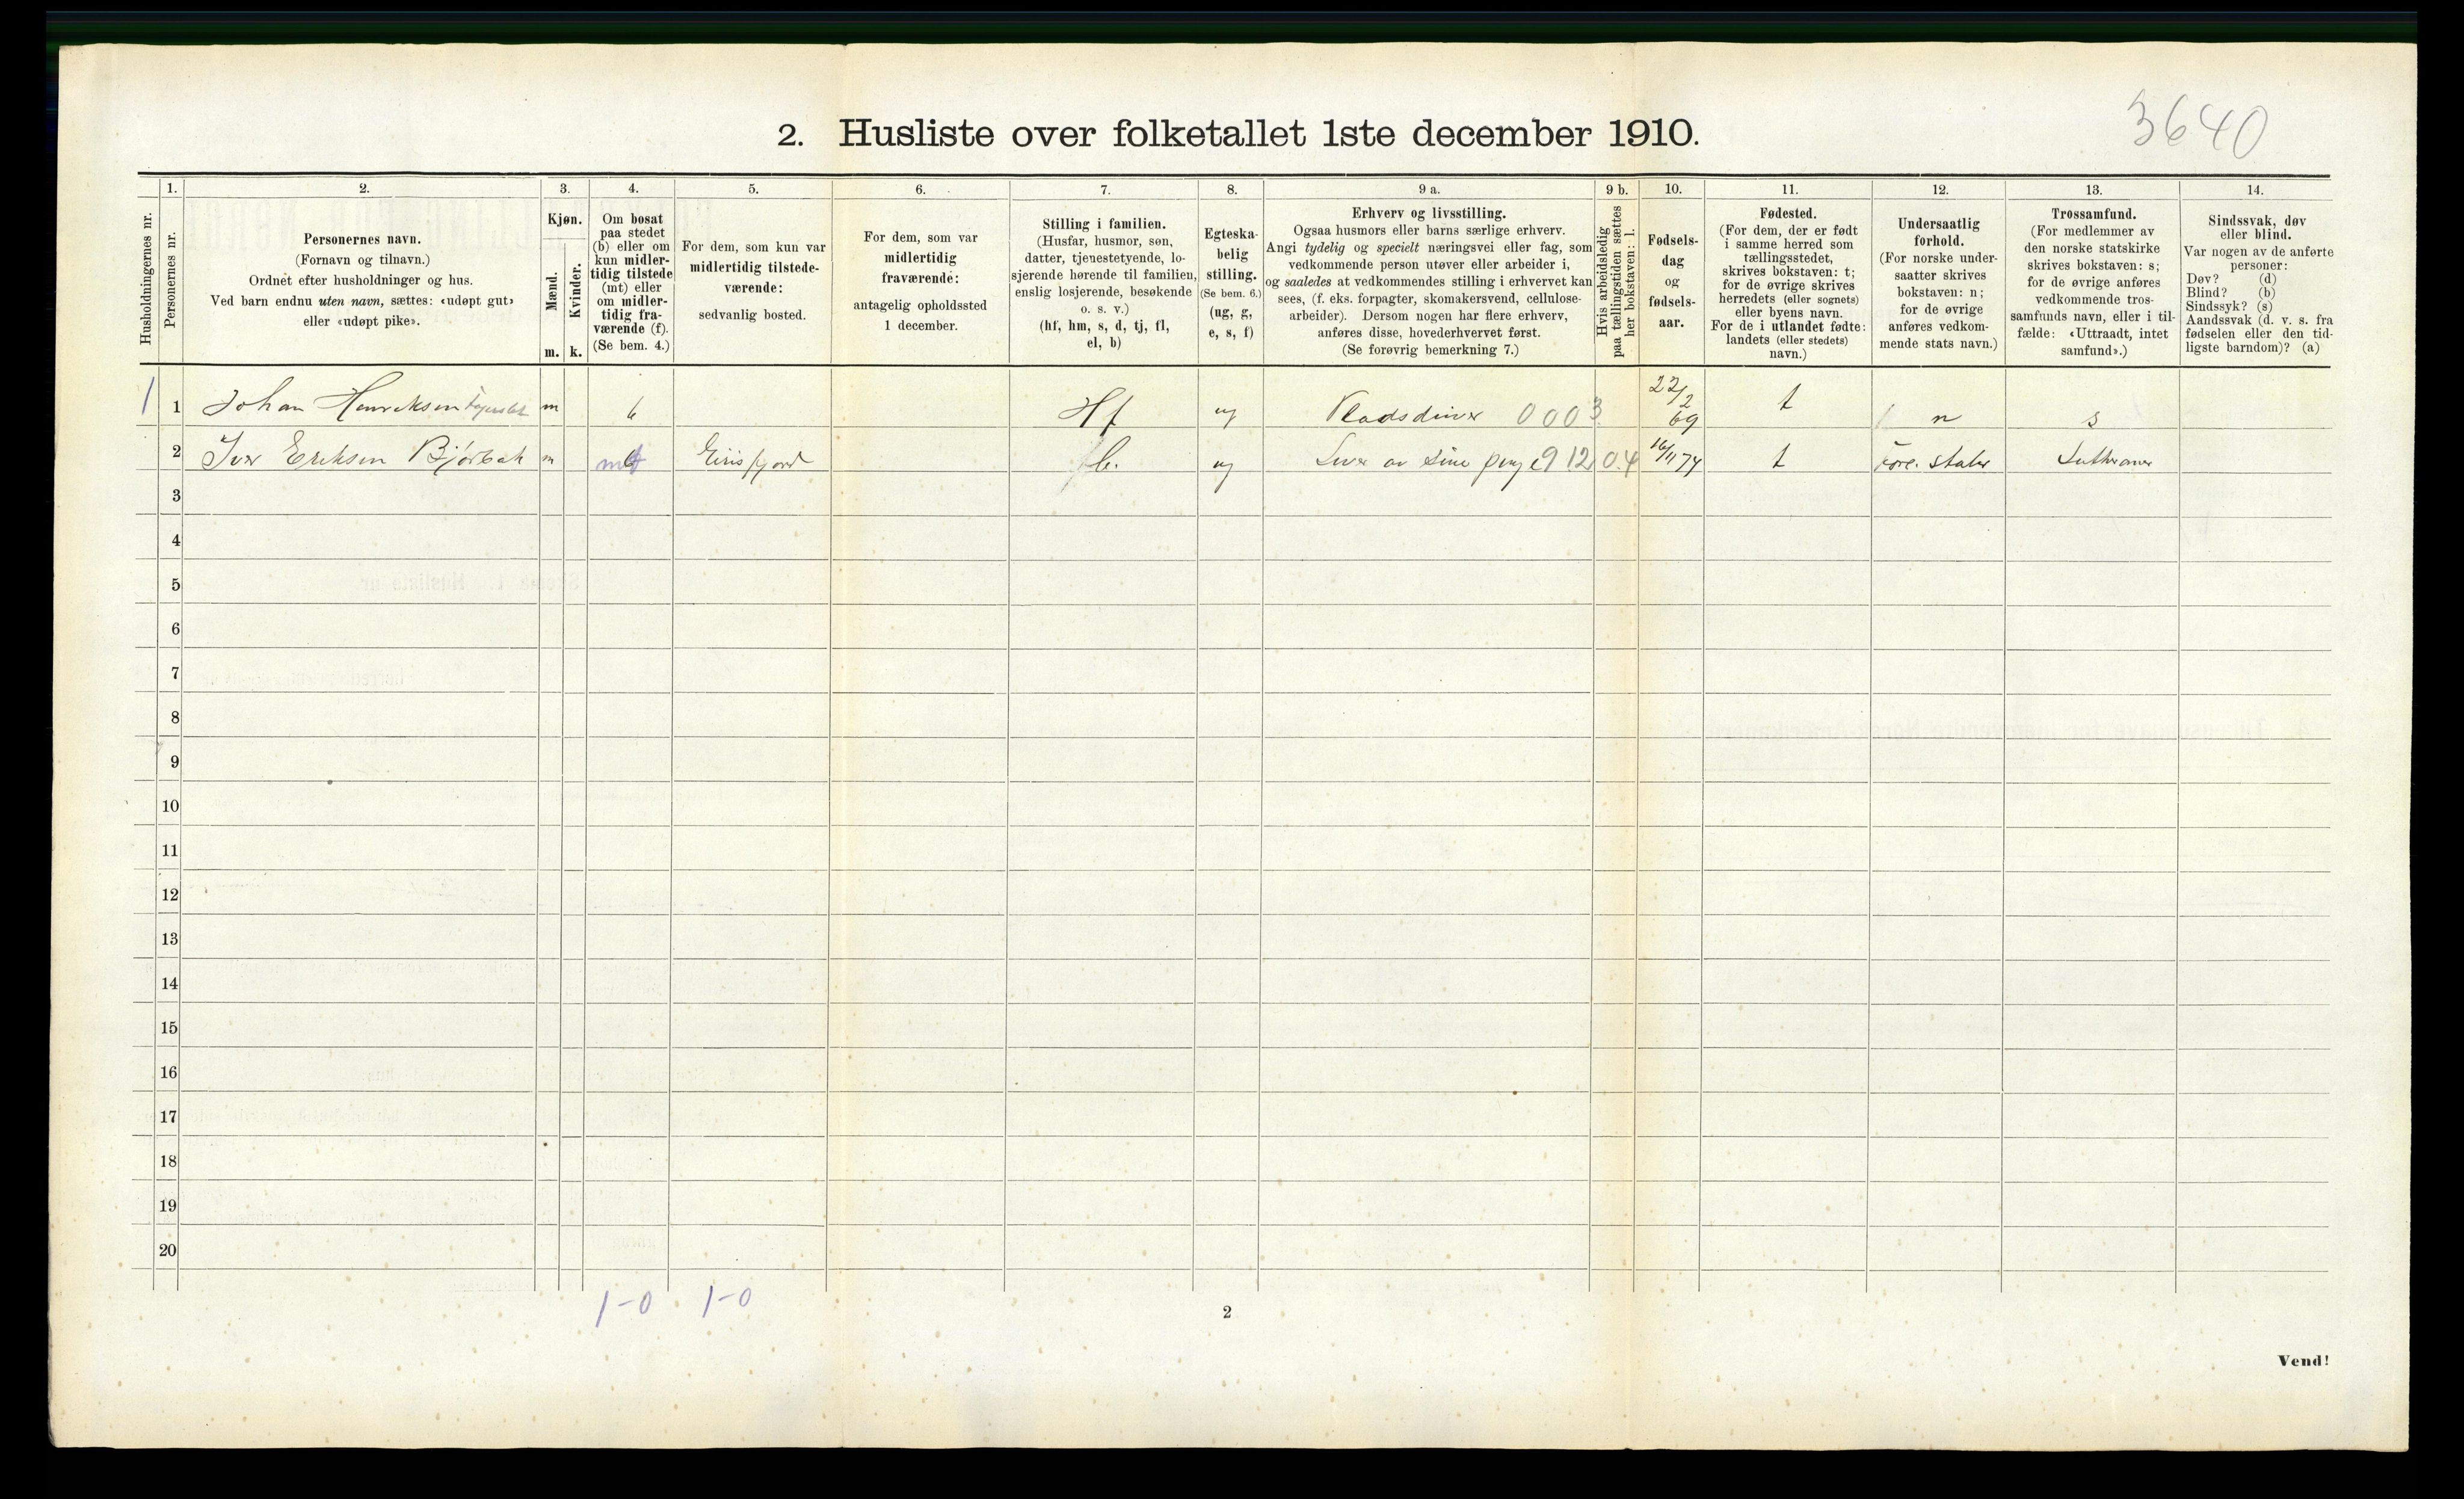 3640
2. Husliste over folketallet 1ste december 1910.
Husholdningernes nr.
1.
Personernes nr.
2.
Personernes navn.
(Fornavn og tilnavn.)
Ordnet efter husholdninger og hus.
Ved barn endnu uten navn, sættes: «udøpt gut»
eller «udøpt pike».
3.
Kjøn.
Mænd.
Kvinder.
m. k.
4.
Om bosat
paa stedet
(b) eller om
kun midler-
tidig tilstede
(mt) eller
om midler-
tidig fra-
værende (f).
(Se bem. 4.)
5.
For dem, som kun var
midlertidig tilstede-
værende:
sedvanlig bosted.
6.
For dem, som var
midlertidig
fraværende:
antagelig opholdssted
1 december.
7.
Stilling i familien.
(Husfar, husmor, søn,
datter, tjenestetyende, lo-
sjerende hørende til familien,
enslig losjerende, besøkende
o. s. v.)
(hf, hm, s, d, tj, fl,
el, b)
8.
Egteska-
belig
stilling.
(Se bem. 6.)
(ug, g,
e, s, f)
9 a.
Erhverv og livsstilling.
Ogsaa husmors eller barns særlige erhverv.
Angi tydelig og specielt næringsvei eller fag, som
vedkommende person utøver eller arbeider i,
og saaledes at vedkommendes stilling i erhvervet kan
sees, (f. eks. forpagter, skomakersvend, cellulose-
arbeider). Dersom nogen har flere erhverv,
anføres disse, hovederhvervet først.
(Se forøvrig bemerkning 7.)
9 b.
Hvis arbeidsledig
paa tællingstiden sættes
her bokstaven: l.
10.
Fødsels-
dag
og
fødsels-
aar.
11.
Fødested.
(For dem, der er født
i samme herred som
tællingsstedet,
skrives bokstaven: t;
for de øvrige skrives
herredets (eller sognets)
eller byens navn.
For de i utlandet fødte:
landets (eller stedets)
navn.)
12.
Undersaatlig
forhold.
(For norske under-
saatter skrives
bokstaven: n;
for de øvrige
anføres vedkom-
mende stats navn.)
13.
Trossamfund.
(For medlemmer av
den norske statskirke
skrives bokstaven: s;
for de øvrige anføres
vedkommende tros-
samfunds navn, eller i til-
fælde: «Uttraadt, intet
samfund».)
14.
Sindssvak, døv
eller blind.
Var nogen av de anførte
personer:
Døv? (d)
Blind? (b)
Sindssyk? (s)
Aandssvak (d. v. s. fra
fødselen eller den tid-
ligste barndom)? (a)
1 1 Johan Henriksen m b Hf ug Pladsdiver 0003 22/2 69 t n s
2 Iver Eriksen Bjørbak m mt Eirisfjord b. ug Lever av sine penge 912 0.4 16/11 74 t Fore. stater Lutheraner
3
4
5
6
7
8
9
10
11
12
13
14
15
16
17
18
19
20
1-0 1-0
2
Vend!